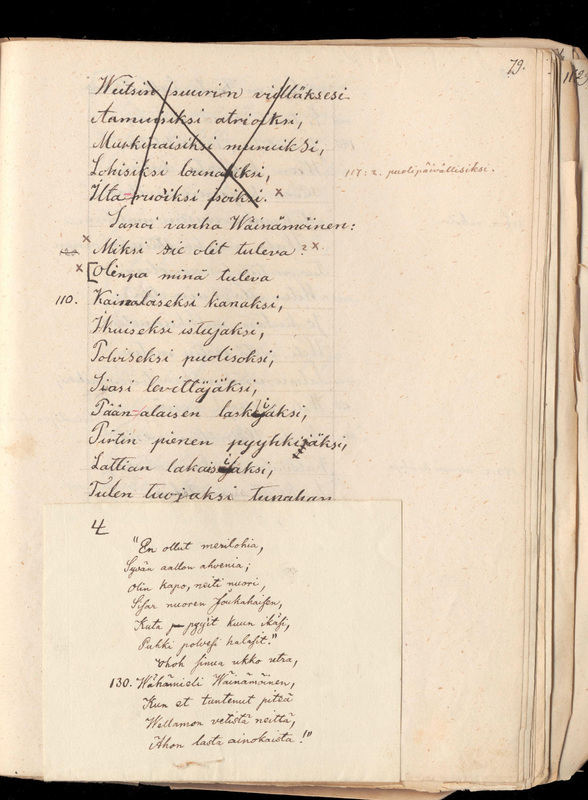 79.
Weitsin suurin viilläksesi
Aamuisiksi atrioiksi,
Murkinaisiksi muruiksi,
Lohisiksi lounahiksi,
117: 2. puolipäivällisiksi.
Ilta-ruoiksi isoiksi. x
Sanoi vanha Wäinämöinen:
x Miksi sie olit tuleva? x
x [Olinpa minä tuleva
110. Kainaloiseksi kanaksi,
Ikuiseksi istujaksi,
Polviseksi puolisoksi,
Siasi levittäjäksi,
Pään-alaisen laskijaksi,
Pirtin pienen pyyhkijäksi,
Lattian lakaisijaksi,
Tulen tuojaksi tupahan
4
"En ollut merilohia,
Syvän aallon ahvenia;
Olin kapo, neiti nuori,
Sisar nuoren Joukahaisen,
Kuta pyyit kuun ikäsi,
Puhki polvesi halasit."
"Ohoh sinua ukko utra,
130. Wähämieli Wäinämöinen,
Kun et tuntenut piteä
Wellamon vetistä neittä,
Ahon lasta ainokaista!"